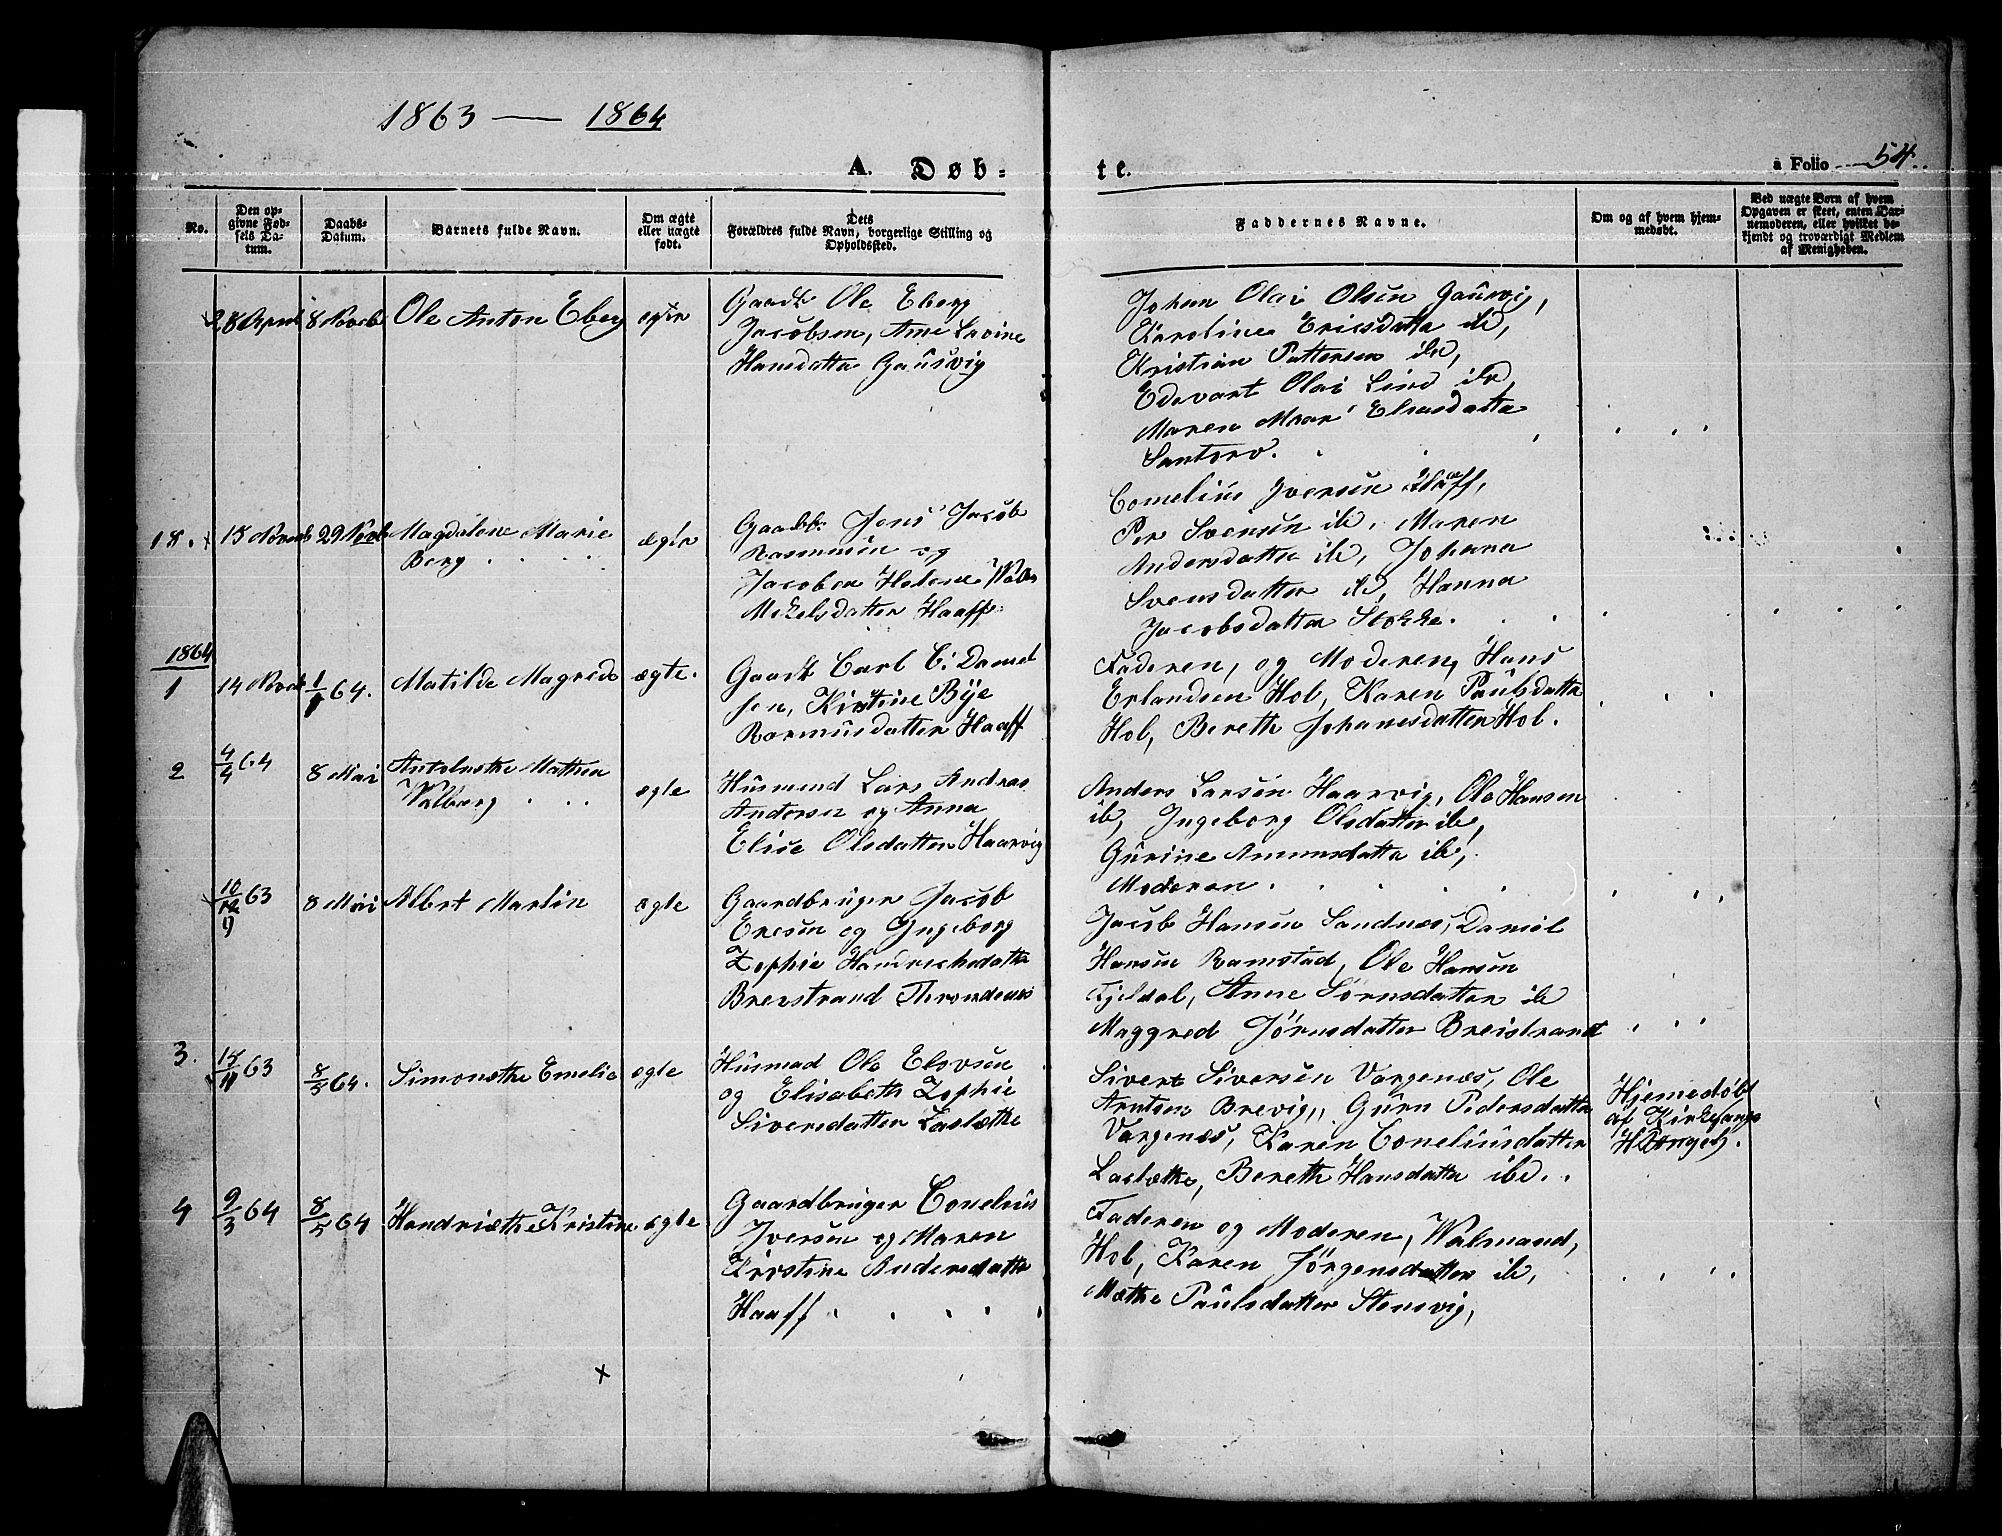 1863 — 1864
A. Døb=
te.
a Folio 54.
No.
Den op-
givne Fød-
sels Da-
tum.
Daabs-
Datum.
Barnets fulde Navn.
Om ægte
eller uægte
født.
Dets
Forældres fulde Navn, borgerlige Stilling og
Opholdssted.
Faddernes Navne.
Om og af hvem hjem-
medøbt.
Ved uægte Børn af hvem
Opgaven er skeet, enten Bar-
nemoderen, eller hvilket be-
kjendt og troværdigt Medlem
af Menigheden.
28 April 8 Novb Ole Anton Eberg ægte
Gaardb Ole Eberg
Jacobsen, Ane Lovine
Hansdatta Gausvig
Johan Olai Olsen Gausvig,
Karoline Ericsdatta ib,
Kristian Pettersen ib,
Edevart Olai Lind ib,
Maren Marί Eliasdatta
Santorv.
18. 15 Novb 29 Novb Magdalene Marie
Berg
ægte
Gaardb: Jens Jacob
Rasmusen og
Jacobea Helene
Mekelsdatter Haaff
Cornelius Iversen Haaff,
Per Svensen ib, Maren
Andersdatta ib, Johana
Svensdatter ib, Hanna
Jacobsdatta Stokke.
1864
1 14 Novb 1/1 64. Matilde Magrede ægte.
Gaardb Carl C: Daniel
sen, Kirstine Bye
Rasmusdatter Haaff
Faderen, og Moderen, Hans
Erlandsen Hol, Karen Paulsdatta
Hol, Bereth Johanesdatter Hol.
2 4/4 64 8 Mai Antolnethe Mathea
Valborg
ægte
Husmand Lars Andreas
Andersen og Anna
Elise Olsdatter Haarvig
Anders Larsen Haarvig, Ole Hansen
ib, Ingeborg Olsdatter ib,
Gurine Amunsdatta ib,
Moderen.
10/12 63 8 Mai Albert Martin ægte
9
Gaardbruger Jacob
Ericsen og Ingeborg
Zophie Hendrichsdatta
Breistrand Throndenæs
Jacob Hansen Sandnæs, Daniel
Hansen Ramstad, Ole Hansen
Fjeldal, Anne Sørnsdatter ib
Maggred Jörnsdatter Breistrand
3. 15/11 63 8/5 64. Simonethe Emelie ægte
Husmad Ole Elovsen
og Elisabeth Zophie
Siversdatter Laslætke
Sivert Siversen Vargenæs, Ole
Arntsen Brevig, Guru Pedersdatter
Vargenæs, Karen Coneliusdatter
Laslætke, Bereth Hansdatta ibd.
Hjemedøbt
af Kirkesanger
H Borgen.
4 9/3 64 8/5 64 Hendriæthe Kristine ægte
Gaardbruger Conelius
Iversen og Maren
Kirstine Andersdatta
Haaff
Faderen og Moderen, Walmand,
Hol, Karen Jörgensdatter ib,
Mæthe Paulsdatter Stensvig,
x